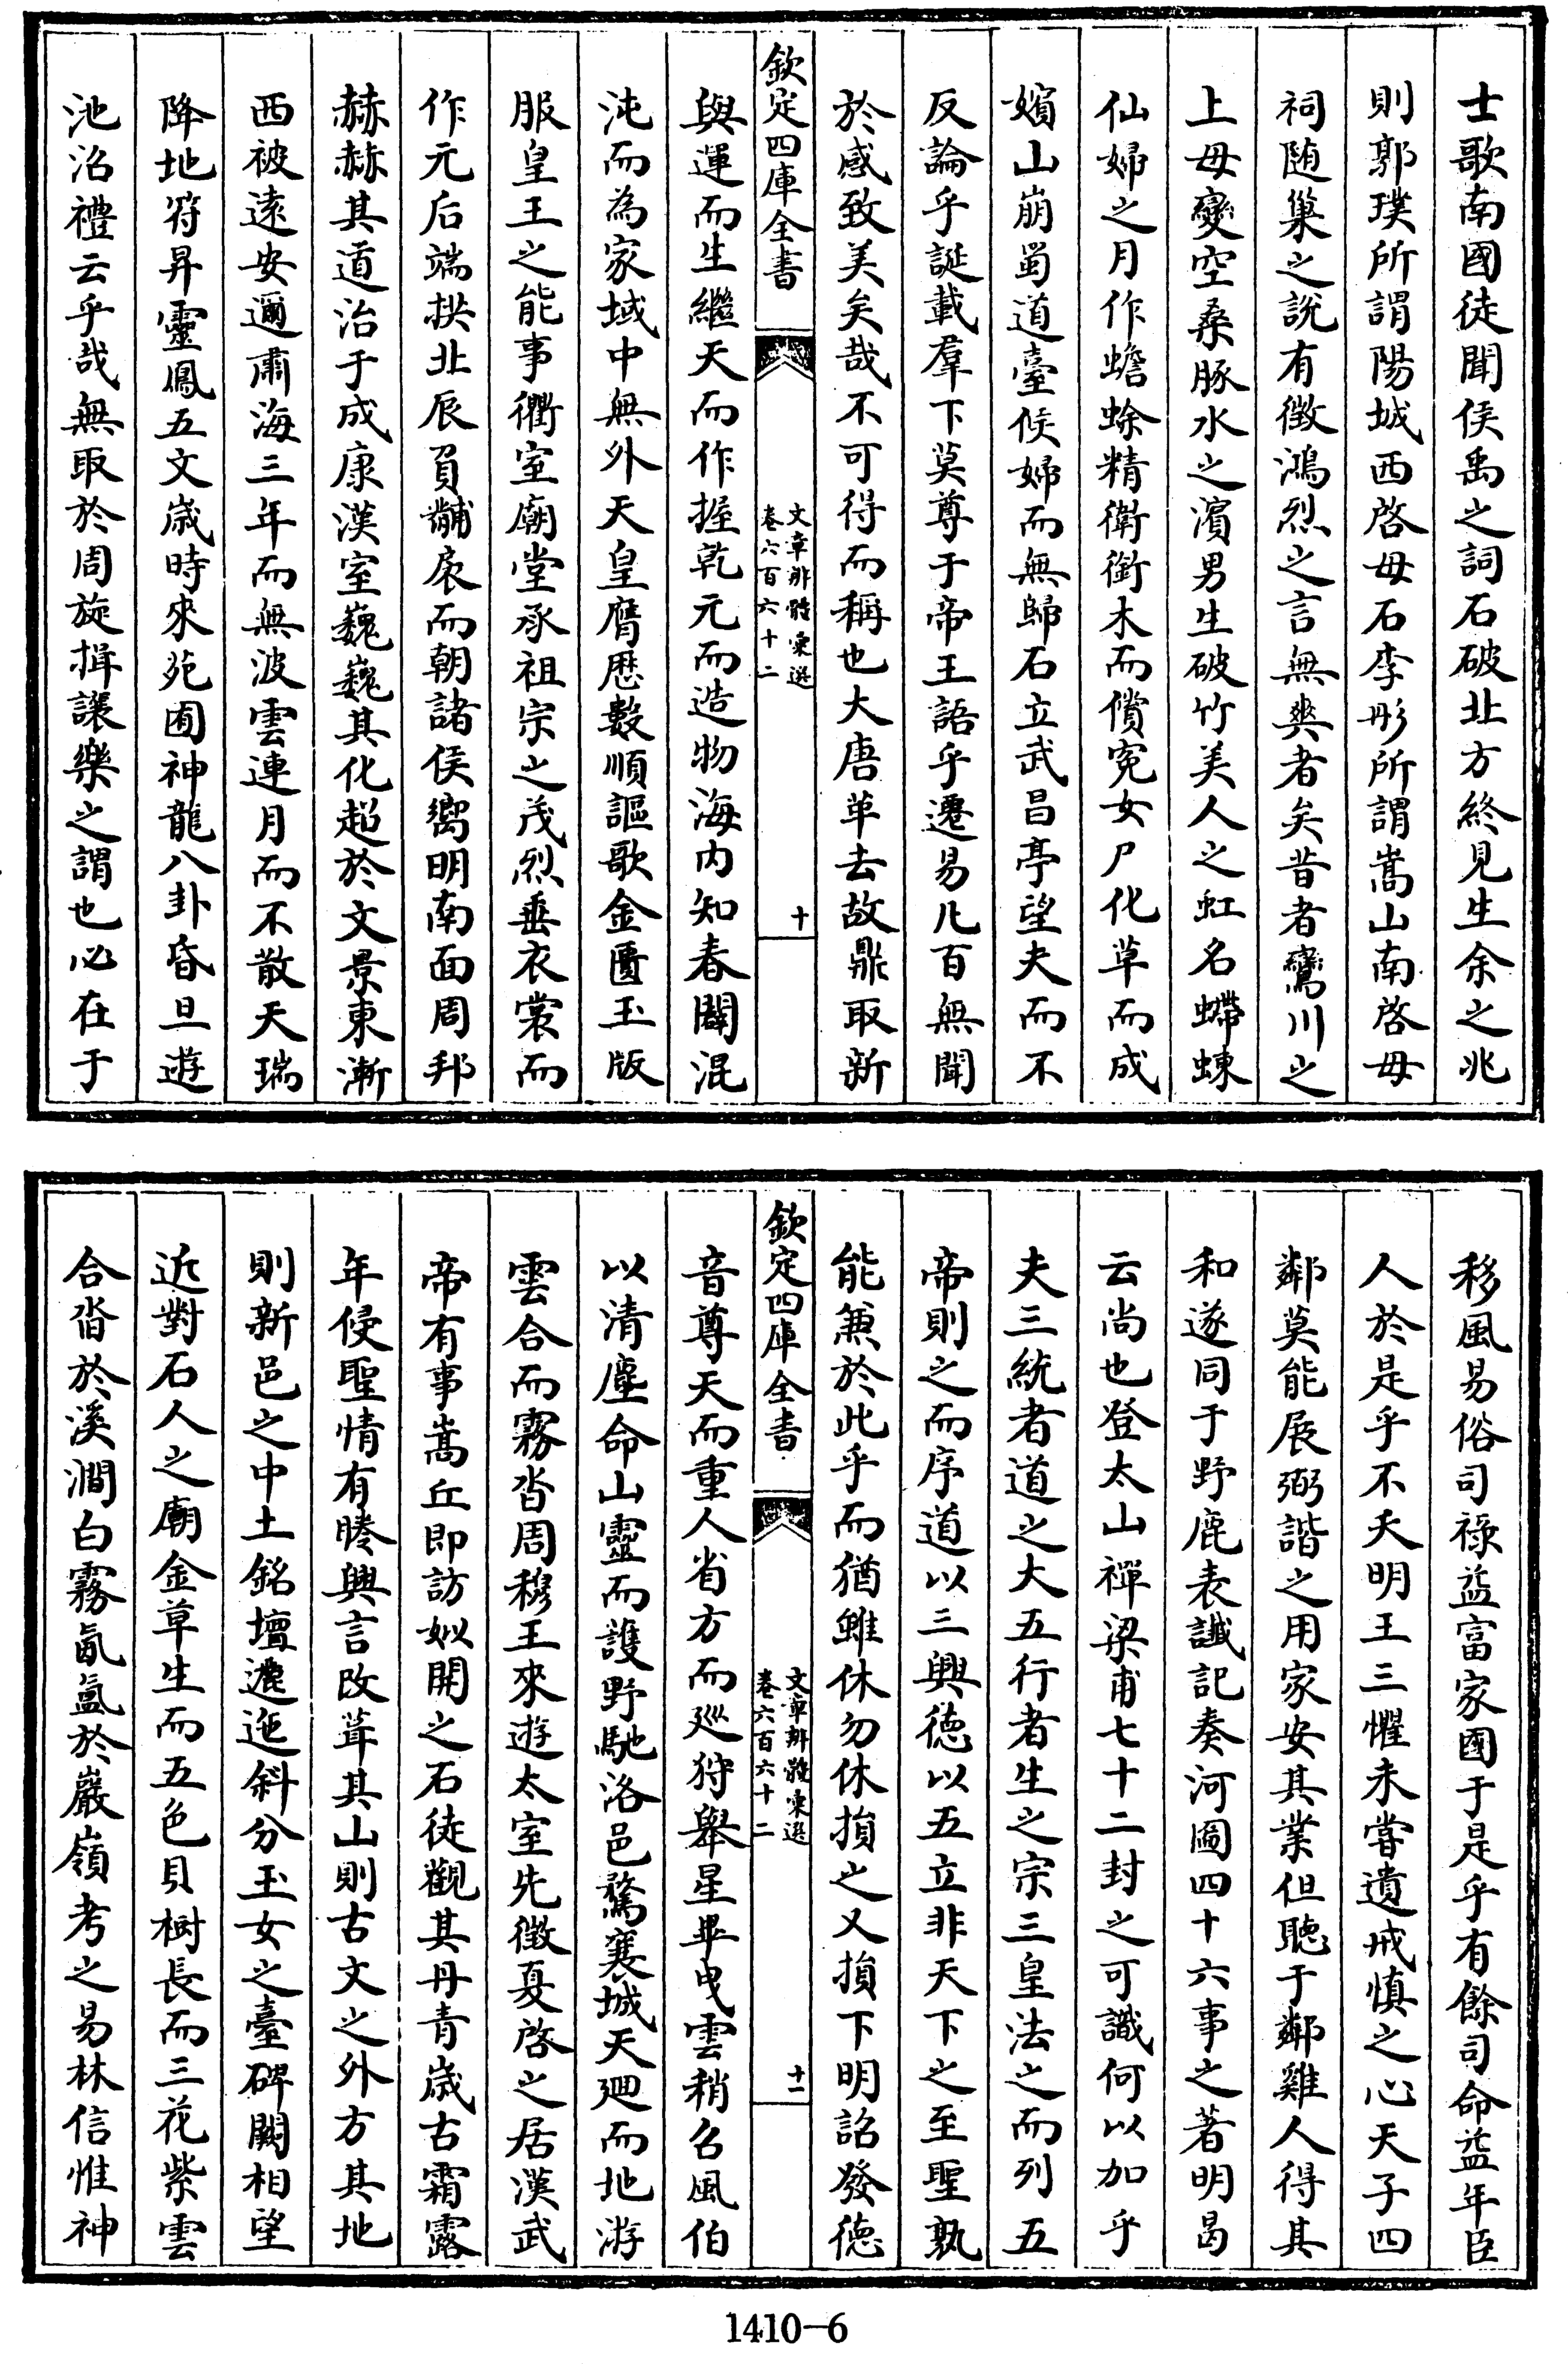 士歌南國徒聞侯禹之詞石破北方終見生余之兆
則郭璞所謂陽城西啓母石李彤所謂嵩山南啓母
祠随巢之說有徵鴻烈之言無爽者矣昔者鸞川之
上母變空桑豚水之濱男生破竹美人之虹名蝃蝀
仙婦之月作蟾蜍精衛銜木而償寃女尸化草而成
嬪山崩蜀道臺候婦而無歸石立武昌亭望夫而不
反論乎誕載羣下莫尊于帝王語乎遷易凡百無聞
於感致美矣哉不可得而稱也大唐革去故鼎取新
欽定四庫全書
文章辨體彚選
卷六百六十二
十
與運而生繼天而作握乾元而造物海内知春闢混
沌而為家域中無外天皇膺厯數順謳歌金匱玉版
服皇王之能事衢室廟堂承祖宗之茂烈垂衣裳而
作元后端拱北辰負黼扆而朝諸侯嚮明南面周邦
赫赫其道治于成康漢室巍巍其化超於文景東漸
西被遠安邇肅海三年而無波雲連月而不散天瑞
降地符昇靈鳳五文嵗時來苑囿神龍八卦昏旦遊
池沼禮云乎哉無取於周旋揖讓樂之謂也必在于
移風易俗司禄益富家國于是乎有餘司命益年臣
人於是乎不夭明王三懼未嘗遺戒慎之心天子四
鄰莫能展弼諧之用家安其業但聽于鄰雞人得其
和遂同于野鹿表讖記奏河圖四十六事之著明曷
云尚也登太山禪梁甫七十二封之可識何以加乎
夫三統者道之大五行者生之宗三皇法之而列五
帝則之而序道以三興德以五立非天下之至聖孰
能兼於此乎而猶雖休勿休損之又損下明詔發德
欽定四庫全書
文章辨體彚選
卷六百六十二
十一
音尊天而重人省方而廵狩舉星畢曳雲稍召風伯
以清塵命山靈而護野馳洛邑騖襄城天廻而地游
雲合而霧沓周穆王來遊太室先徵夏啓之居漢武
帝有事嵩丘即訪姒開之石徒觀其丹青嵗古霜露
年侵聖情有睠興言改葺其山則古文之外方其地
則新邑之中土銘壇邐迤斜分玉女之臺碑闕相望
近對石人之廟金草生而五色貝樹長而三花紫雲
合沓於溪澗白霧氤氲於巖嶺考之易林信惟神
1410-6